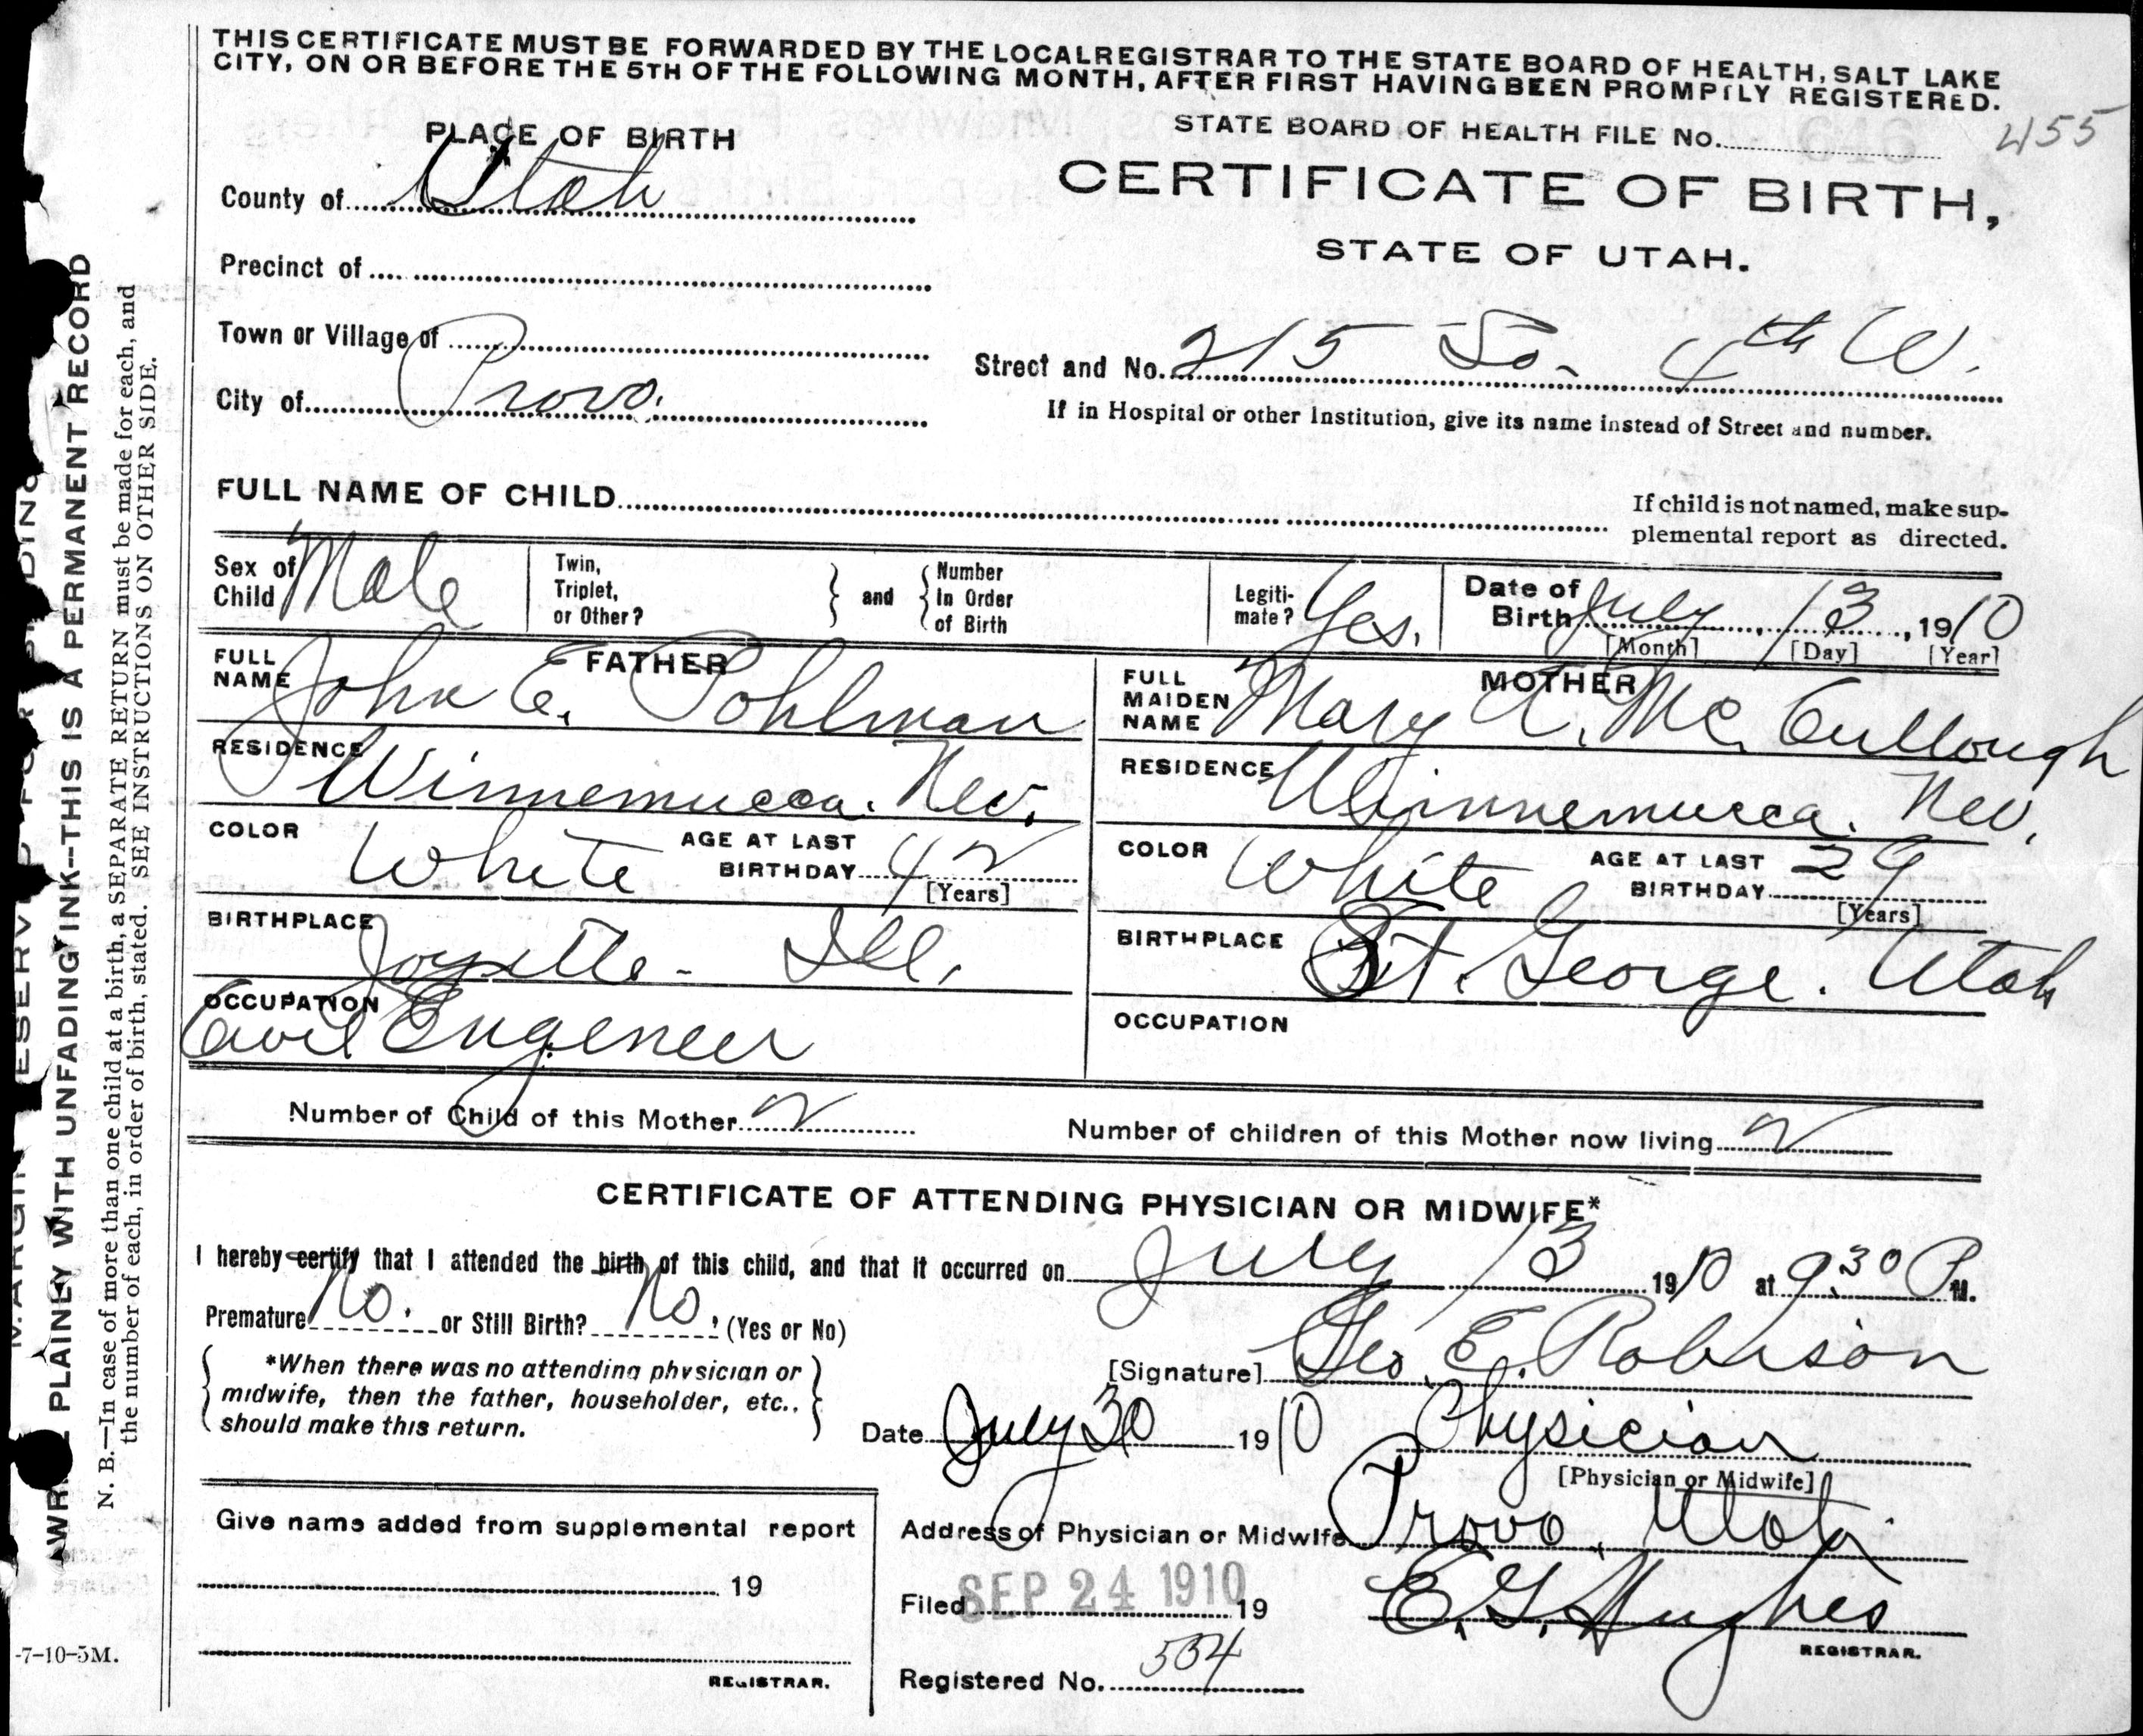 THIS CERTIFICATE MUST BE FORWARDED BY THE LOCAL REGISTRAR TO THE STATE BOARD OF HEALTH, SALT LAKE
CITY, ON OR BEFORE THE 5TH OF THE FOLLOWING MONTH, AFTER FIRST HAVING BEEN PROMPTLY REGISTERED.
PLACE OF BIRTH
STATE BOARD OF HEALTH FILE No. 455
County of Utah
CERTIFICATE OF BIRTH,
STATE OF UTAH.
Precinct of
Town or Village of
Street and No. 215 So. 4th W.
City of Provo.
If in Hospital or other Institution, give its name instead of Street and number.
FULL NAME OF CHILD
If child is not named, make sup-
plemental report as directed.
Sex of Child Male
Twin, Triplet, or Other?
and
Number In Order of Birth
Legiti-mate? Yes.
Date of Birth July 13, 1910
[Month] [Day] [Year]
FATHER
FULL NAME John E. Pohlman
RESIDENCE Winnemucca. Nev.
COLOR White AGE AT LAST BIRTHDAY 42
[Years]
BIRTHPLACE - Ill.
OCCUPATION Civil Engeneer
MOTHER
FULL MAIDEN NAME Mary A. McCullough
RESIDENCE Winnemucca. Nev.
COLOR White AGE AT LAST BIRTHDAY 29
[Years]
BIRTHPLACE St. George. Utah
OCCUPATION
Number of Child of this Mother 2 Number of children of this Mother now living 2
CERTIFICATE OF ATTENDING PHYSICIAN OR MIDWIFE*
I hereby certify that I attended the birth of this child, and that it occurred on July 13 1910 at 9.30 P. M.
Premature No. or Still Birth? No. (Yes or No)
*When there was no attending physician or
midwife, then the father, householder, etc.,
should make this return.
[Signature] Geo. E. Robison
Date July 30 1910 Physician
[Physician or Midwife]
Address of Physician or Midwife Provo. Utah
Give name added from supplemental report
19
REGISTRAR.
Filed SEP 24 1910 19 E. G. Hughes
REGISTRAR.
Registered No. 534
WRITE PLAINLY WITH UNFADING INK--THIS IS A PERMANENT RECORD
N. B.—In case of more than one child at a birth, a SEPARATE RETURN must be made for each, and
the number of each, in order of birth, stated. SEE INSTRUCTIONS ON OTHER SIDE.
-7-10-5M.